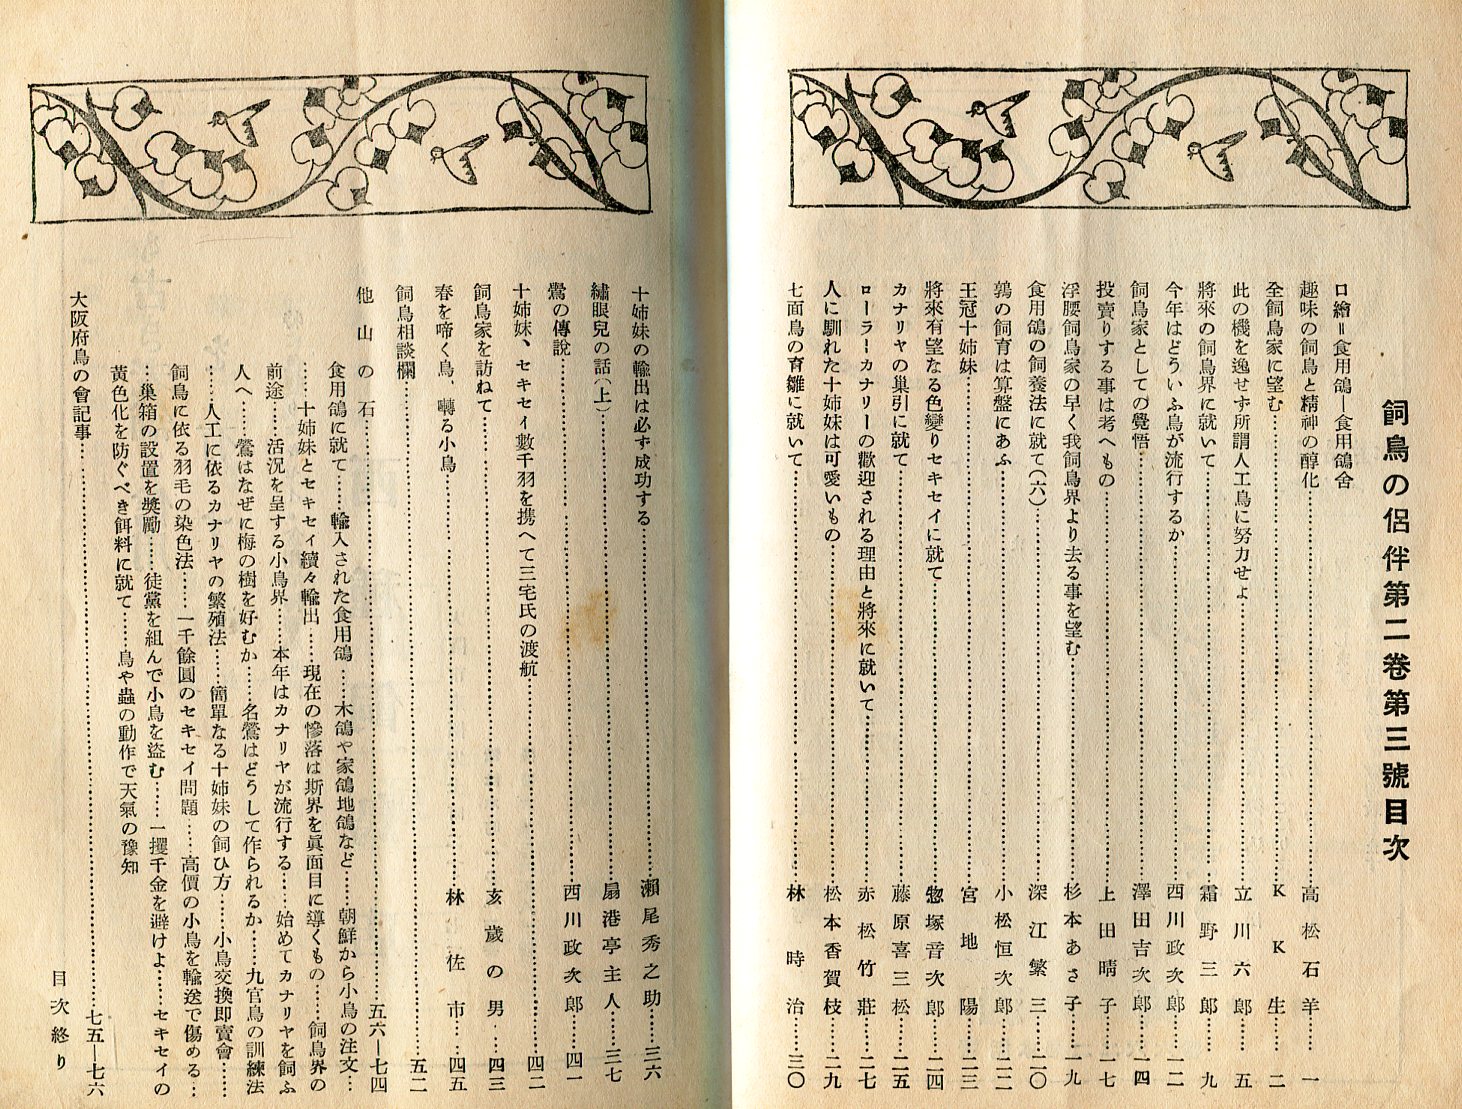 飼鳥の侶伴第二卷第三號目次
口繪＝食用鴿―食用鴿舍
趣味の飼鳥と精神の醇化……高松石羊……一
全飼鳥家に望む……ＫＫ生……二
此の機を逸せず所謂人工鳥に努力せよ……立川六郎……五
將來の飼鳥界に就いて……霜野三郎……九
今年はどういふ鳥が流行するか……西川政次郎……一二
飼鳥家としての覺悟……澤田吉次郎……一四
投賣りする事は考へもの……上田晴子……一七
浮腰飼鳥家の早く我飼鳥界より去る事を望む……杉本あさ子……一九
食用鴿の飼養法に就て（六）……深江繁三……二〇
鶉の飼育は算盤にあふ……小松恒次郎……二二
王冠十姉妹……宮地陽……二三
將來有望なる色變りセキセイに就て……惣塚音次郎……二四
カナリヤの巣引に就て……藤原喜三松……二五
ローラーカナリーの歡迎される理由と將來に就いて……赤松竹莊……二七
人に馴れた十姉妹は可愛いもの……松本香賀枝……二九
七面鳥の育雛に就いて……林時治……三〇
十姉妹の輸出は必ず成功する……瀨尾秀之助……三六
繡眼兒の話（上）……扇港亭主人……三七
鶯の傳說……西川政次郎……四一
十姉妹、セキセイ數千羽を携へて三宅氏の渡航……四二
飼鳥家を訪ねて……亥歲の男……四三
春を啼く鳥、囀る小鳥……林佐市……四五
飼鳥相談欄……五二
他山の石……五六―七四
食用鴿に就て……輸入された食用鴿……木鴿や家鴿地鴿など……朝鮮から小鳥の注文…
……十姉妹とセキセイ續々輸出……現在の慘落は斯界を眞面目に導くもの……飼鳥界の
前途……活況を呈する小鳥界……本年はカナリヤが流行する……始めてカナリヤを飼ふ
人へ……鶯はなぜに梅の樹を好むか……名鶯はどうして作られるか……九官鳥の訓練法
……人工に依るカナリヤの繁殖法……簡單なる十姉妹の飼ひ方……小鳥交換即賣會……
飼鳥に依る羽毛の染色法……一千餘圓のセキセイ問題……高價の小鳥を輸送で傷める…
…巣箱の設置を奬勵……徒黨を組んで小鳥を盜む……一攫千金を避けよ……セキセイの
黃色化を防ぐべき餌料に就て……鳥や蟲の動作で天氣の豫知
大阪府鳥の會記事……七五―七六
目次終り